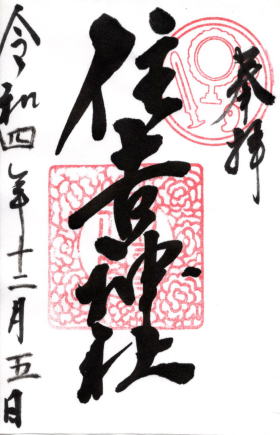 奉拝
住吉神社
令和四年十二月五日